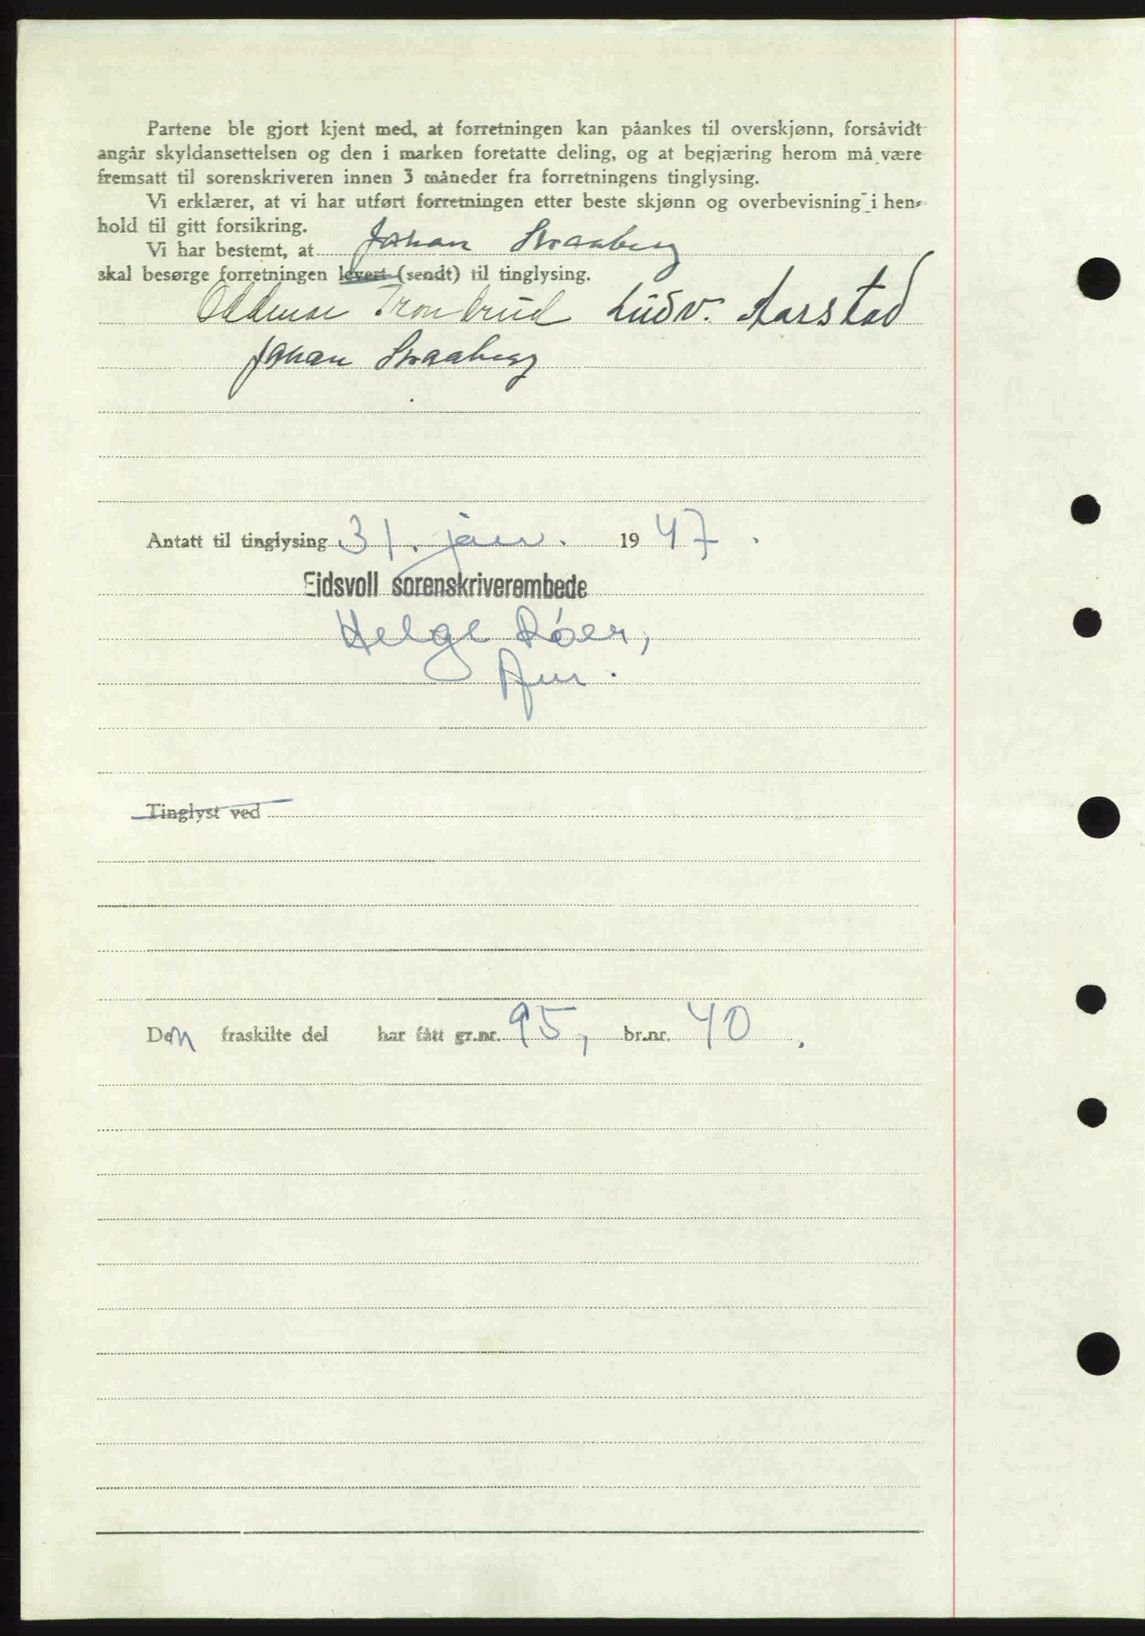 Partene ble gjort kjent med, at forretningen kan påankes til overskjønn, forsåvidt
angår skyldansettelsen og den i marken foretatte deling, og at begjæring herom må være
fremsatt til sorenskriveren innen 3 måneder fra forretningens tinglysing.
Vi erklærer, at vi har utført forretningen etter beste skjønn og overbevisning i hen-
hold til gitt forsikring.
Vi har bestemt, at Johan Straaberg
skal besørge forretningen levert (sendt) til tinglysing.
Trondrud Ludv. Aarstad
Johan Straaberg
Antatt til tinglysing 31. jan. 1947.
Eidsvoll sorenskriverembede
Helge Röer,
Tinglyst ved
Den fraskilte del har fått gr.nr. 95, br.nr. 40.